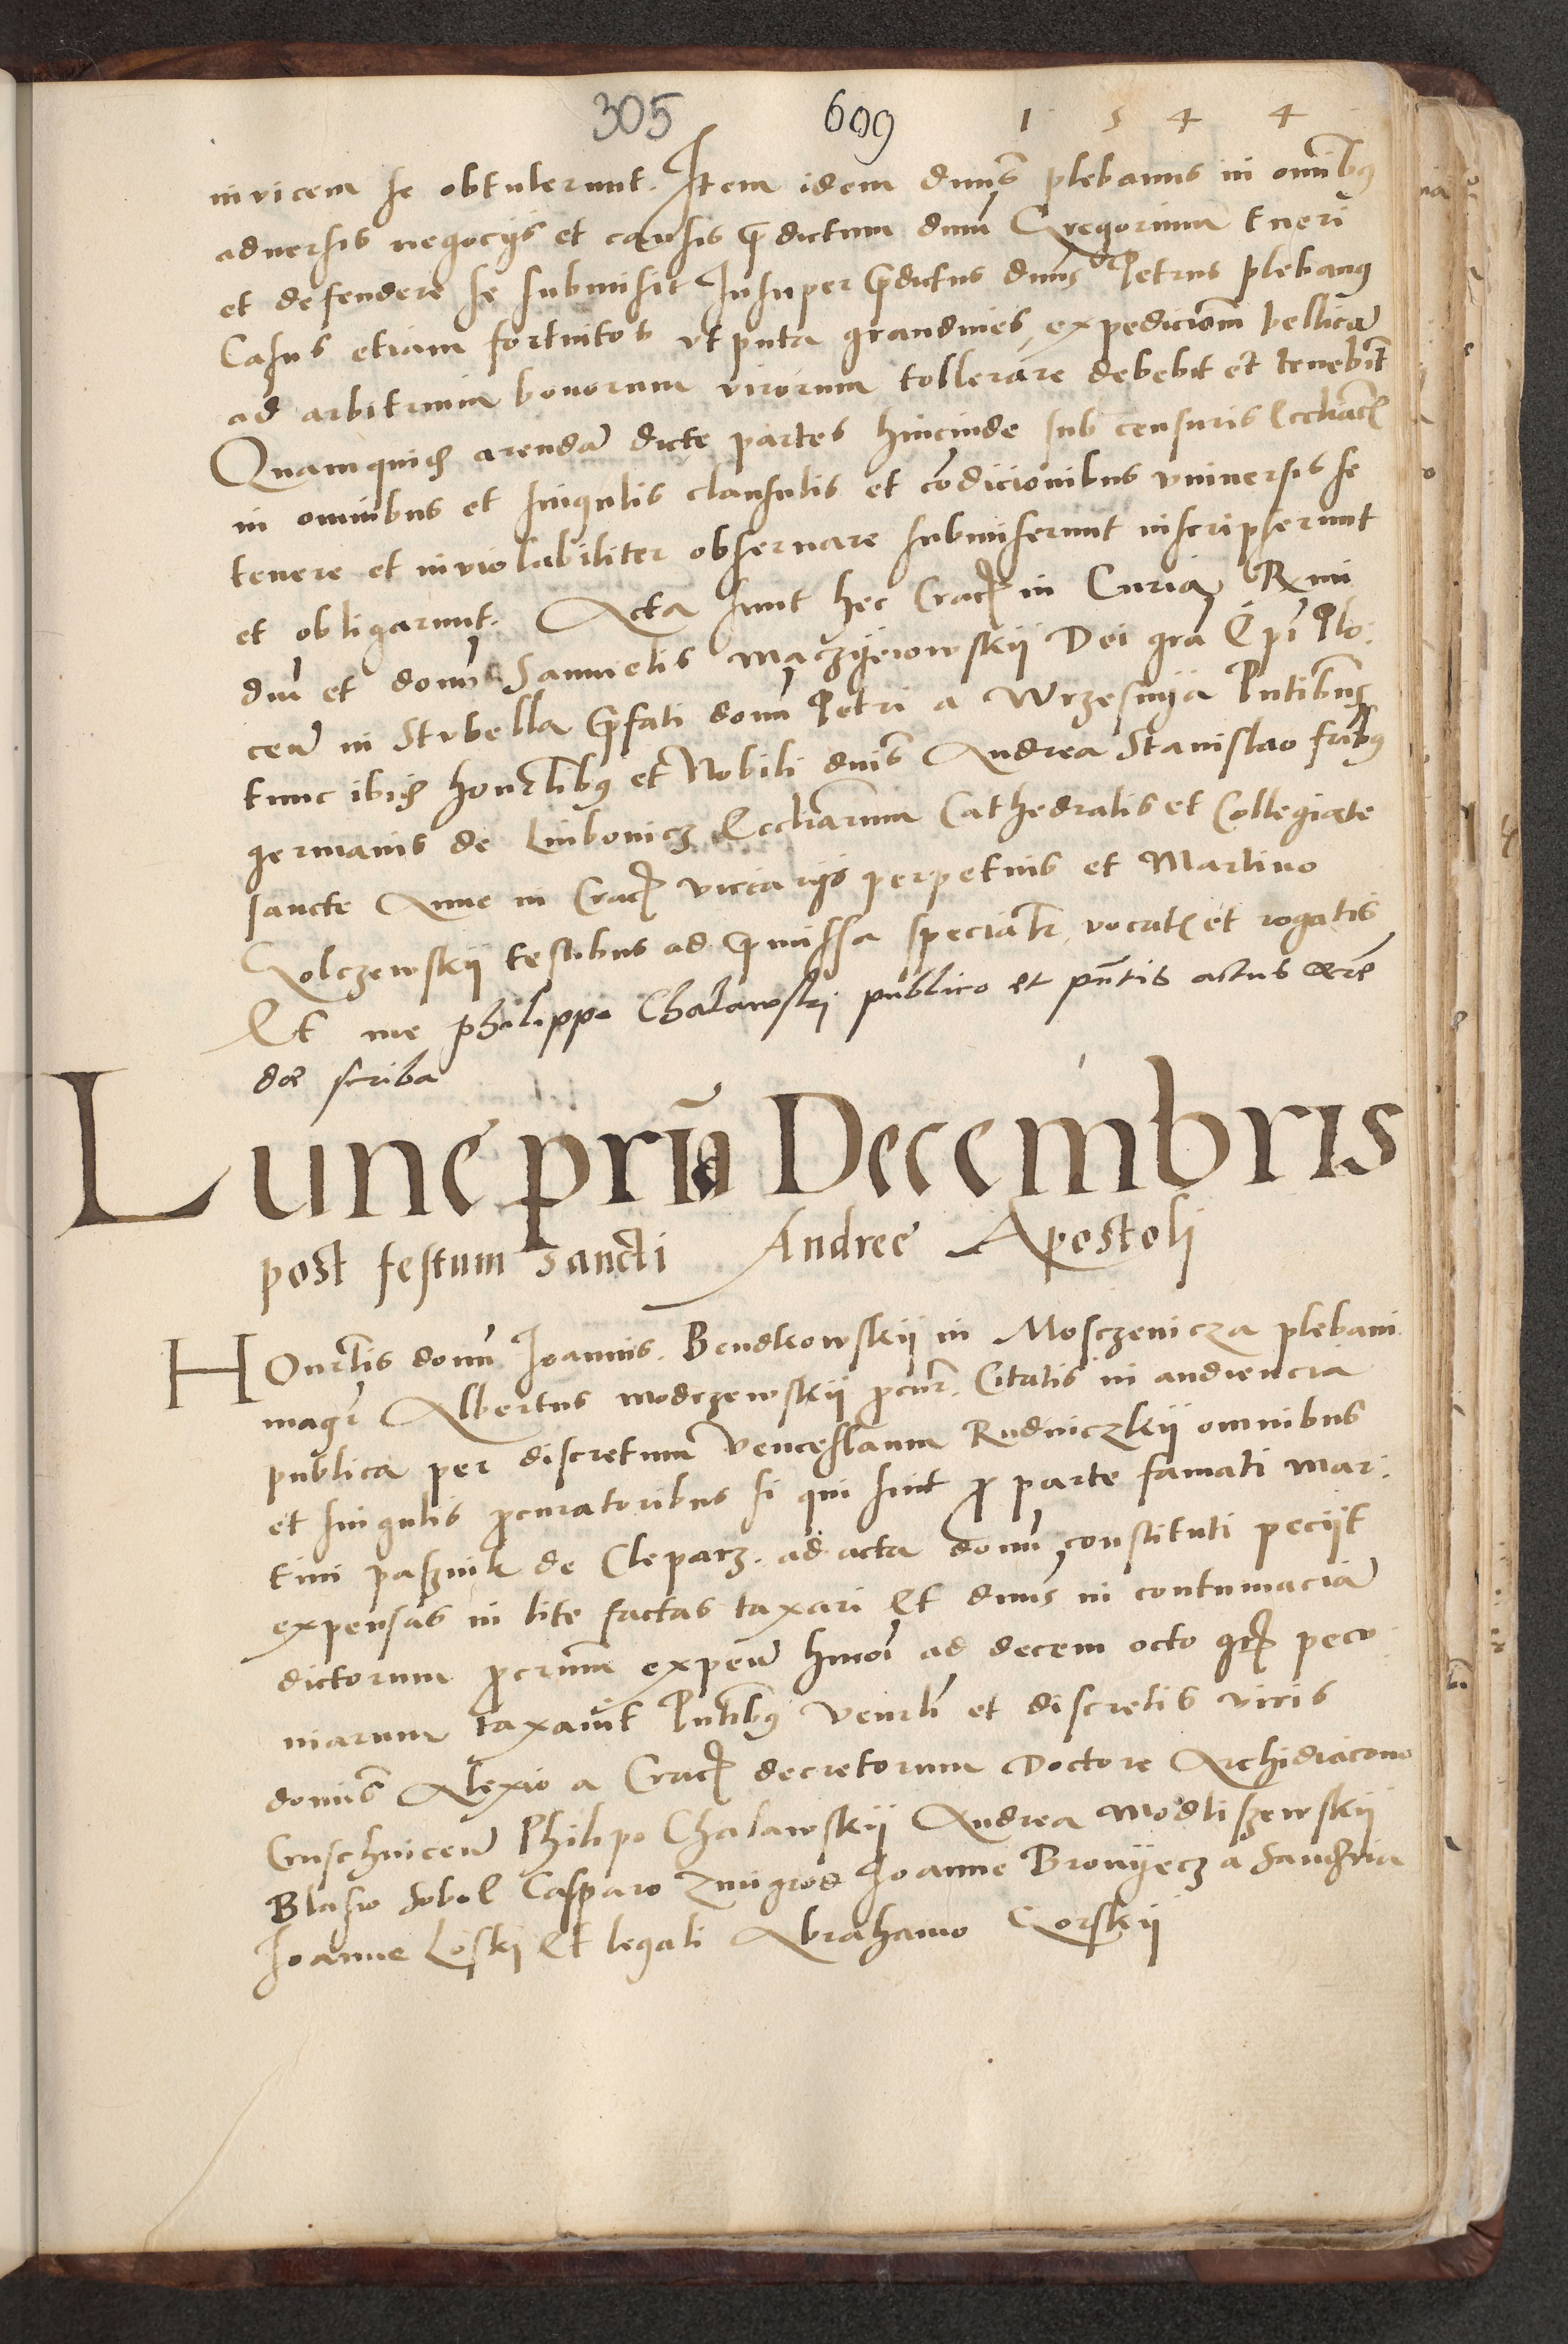 305 609 1 5 4 4
invicem se obtulerunt. Item idem dnus plebanus in omnibus
adversis negocijs et causis predictum dnum Gregorium tueri
et defendere se submisit Insuper predictus dnus Petrus plebanus
Casus etiam fortuitos utputa grandines, expedicionem bellicam
ad arbitrium bonorum virorum tollerare debebit et tenebit
Quamquidem arendam dicte partes hincinde sub censuris Ecclasticis
in omnibus et singulis clausulis et condicionibus universis se
tenere et inviolabiliter observare submiserunt inscripserunt
et obligarunt. Acta sunt hec Crac in Curia Rmi
dni et domi Samuelis Maczyeiowskij Dei gra Epi Plo:
cen in Stubella prefati domi Petri a Wrzesnija Pntibus
tunc ibidem honorlibus et Nobili dnis Andrea Stanislao fratribus
germanis de Limbonicz Eccliarum Cathedralis et Collegiate
sancte Anne in Crac viccarijs perpetuis et Martino
Golczewskij testibus ad premissa specialiter vocatis et rogatis
Et me Philippo Chalawskij publico et pntis actus coram
dor scriba
Lune prima Decembris
post festum sancti Andree Apostoli
HOnorlis domi Joannis Bendkowskij in Mosczenicza plebani
magr Albertus modrzewskij procur. Citatis in audiencia
publica per discretum Venceslaum Rudniczkij omnibus
et singulis procuratoribus si qui sint pro parte famati Mar:
tini paschnik de Cleparz. ad acta domi constituti peciit
expensas in lite factas taxari Et dnus in contumaciam
dictorum procrum expen hmoi ad decem octo gr pecu
niarum taxavit Pntibus Venrli et discretis viris
domis Alexio a Crac decretorum Doctore Archidiacono
Cruschvicen Philipo Chalawskij Andrea Modliszewskij
Blasio Sobol Casparo Zmigrod Joanne Bronyecz a Sandria
Joanne Loskj Et legali Abrahamo Gorskij